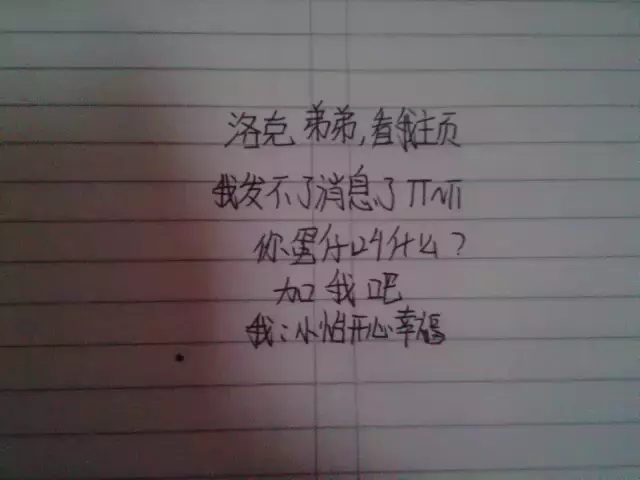 洛克弟弟,看我主页
我发不了消息了TT^TT
你蛋仔叫什么?
加我吧
我:小怡开心幸福